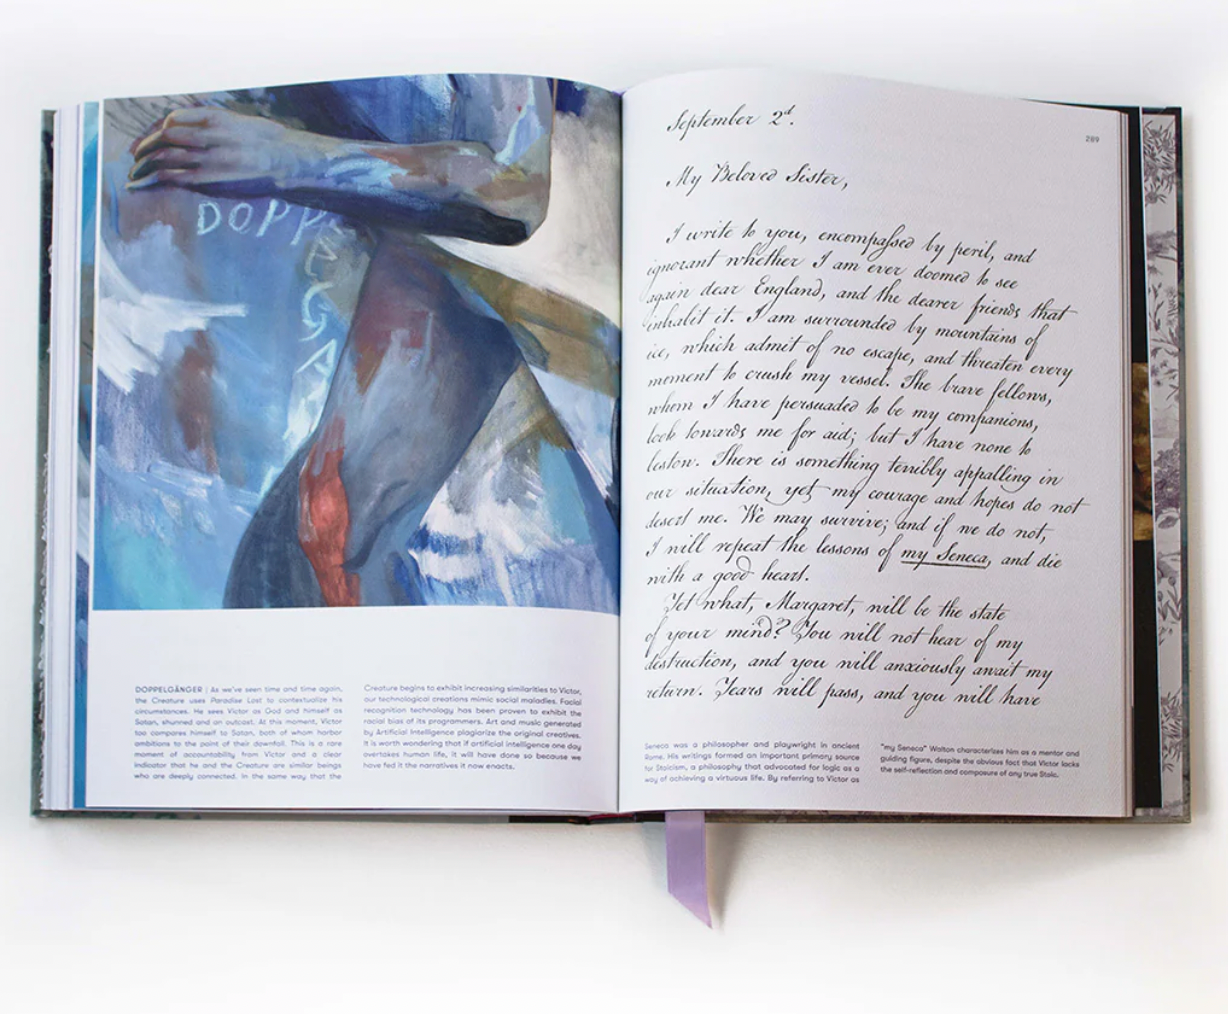 DOPPELGA
DOPPELGÄNGER | As we've seen time and time again,
the Creature uses Paradise Lost to contextualize his
circumstances. He sees Victor as God and himself as
Satan, shunned and an outcast. At this moment, Victor
too compares himself to Satan, both of whom harbor
ambitions to the point of their downfall. This is a rare
moment of accountability from Victor and a clear
indicator that he and the Creature are similar beings
who are deeply connected. In the same way that the
Creature begins to exhibit increasing similarities to Victor,
our technological creations mimic social maladies. Facial
recognition technology has been proven to exhibit the
racial bias of its programmers. Art and music generated
by Artificial Intelligence plagiarize the original creatives.
It is worth wondering that if artificial intelligence one day
overtakes human life, it will have done so because we
have fed it the narratives it now enacts.
289
September 2d.
My Beloved Sister,
I write to you, encompassed by peril, and
ignorant whether I am ever doomed to see
again dear England, and the dearer friends that
inhabit it. I am surrounded by mountains of
ice, which admit of no escape, and threaten every
moment to crush my vessel. The brave fellows,
whom I have persuaded to be my companions,
look towards me for aid; but I have none to
bestow. There is something terribly appalling in
our situation, yet my courage and hopes do not
desert me. We may survive; and if we do not,
I will repeat the lessons of my Seneca, and die
with a good heart.
Yet what, Margaret, will be the state
of your mind? You will not hear of my
destruction, and you will anxiously await my
return. Years will pass, and you will have
Seneca was a philosopher and playwright in ancient
Rome. His writings formed an important primary source
for Stoicism, a philosophy that advocated for logic as a
way of achieving a virtuous life. By referring to Victor as
"my Seneca" Walton characterizes him as a mentor and
guiding figure, despite the obvious fact that Victor lacks
the self-reflection and composure of any true Stoic.